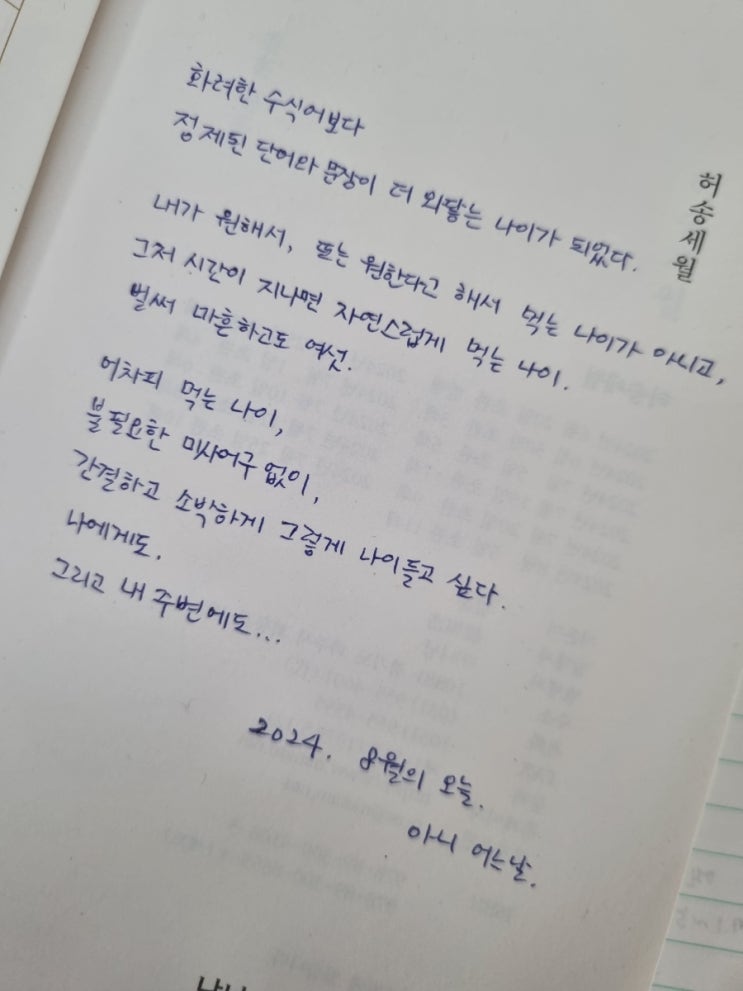 허송세월
화려한 수식어보다
정제된 단어와 문장이 더 와닿는 나이가 되었다.
내가 원해서, 또는 원한다고 해서 먹는 나이가 아니고,
그저 시간이 지나면 자연스럽게 먹는 나이.
벌써 마흔하고도 여섯.
어차피 먹는 나이,
불필요한 미사어구 없이,
간결하고 소박하게 그렇게 나이들고 싶다.
나에게도.
그리고 내 주변에도...
2024. 8월의 오늘.
아니 어느날.